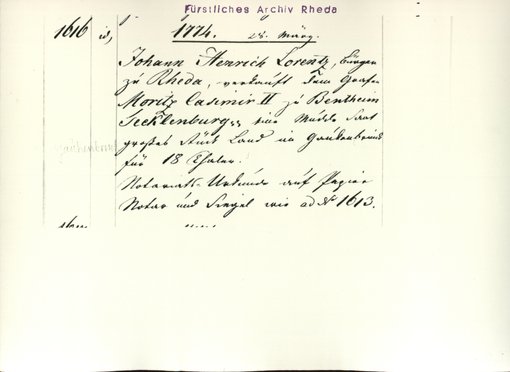 Fürstliches Archiv Rheda
1616 id, 1774. 28. März.
Johann Henrich Lorentz, Bürger
zu Rheda, verkauft dem Grafen
Moritz Casimir II zu Bentheim
Tecklenburg eine Müdde Saat
großes Stück Land im
für 18 Thaler.
Notariats-Urkunde auf Papier
Notar und Siegel wie ad № 1613.